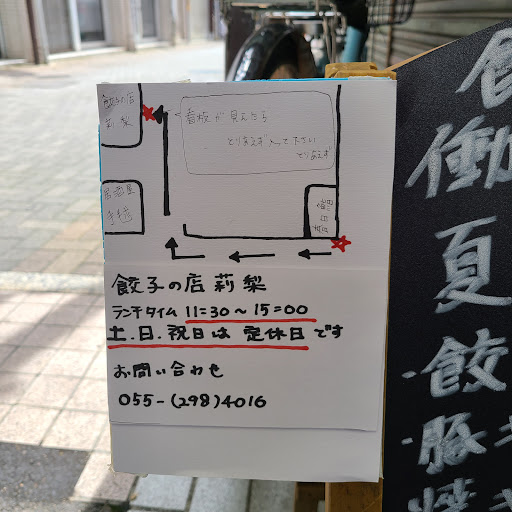 餃子の店
莉梨
看板が見えたら
とりあえず入って下さい
とりあえず
居酒屋
餃子の店莉梨
ランチタイム 11:30〜15:00
土.日.祝日は 定休日です
お問い合わせ
055-(298)4016
働
夏
・餃
・豚キ